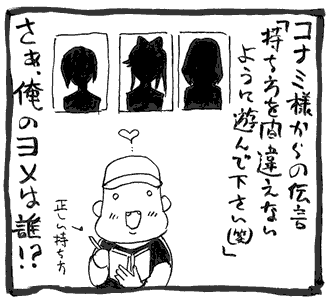 コナミ様からの伝言
「持ち方を間違えない
ように遊んで下さい(笑)」
さぁ、俺のヨメは誰!?
正しい持ち方